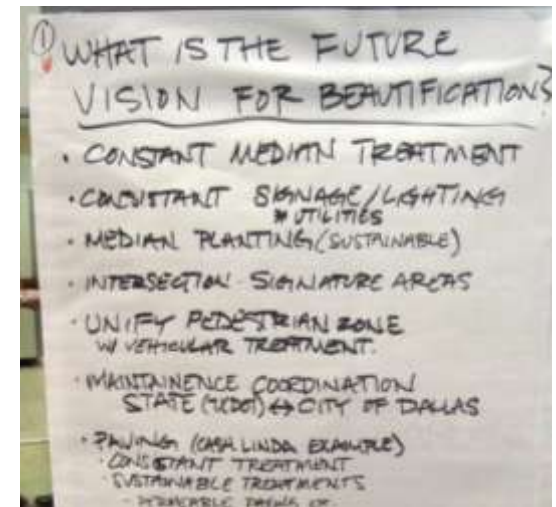 ① WHAT IS THE FUTURE
VISION FOR BEAUTIFICATION?
• CONSTANT MEDIAN TREATMENT
• CONSISTANT SIGNAGE/LIGHTING
# UTILITIES
• MEDIAN PLANTING (SUSTAINABLE)
• INTERSECTION SIGNATURE AREAS
• UNIFY PEDESTRIAN ZONE
W/ VEHICULAR TREATMENT.
• MAINTAINENCE COORDINATION
STATE (TXDOT) ↔ CITY OF DALLAS
• PAVING (CASA LINDA EXAMPLE)
• CONSISTANT TREATMENT
• SUSTAINABLE TREATMENTS